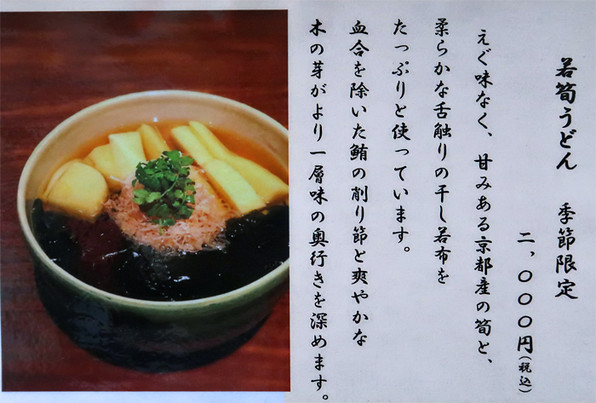 若筍うどん　季節限定
二,〇〇〇円(税込)
えぐ味なく、甘みある京都産の筍と、
柔らかな舌触りの干し若布を
たっぷりと使っています。
血合を除いた鮪の削り節と爽やかな
木の芽がより一層味の奥行きを深めます。